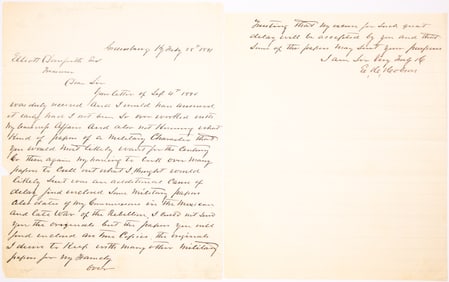 Feby 25th 1891
Elliott Danforth Esq
Dear Sir
Your letter of Sept 4th 1890
was duly received and I would have answered
it early had I not been so over worked with
my business affairs and also not knowing what
kind of papers of a Military Character that
you would most likely want for the Century
So then again my having to look over many
papers to cull out what I thought would
likely suit was an additional cause of
delay find enclosed some Military papers
also data of my Commissions in the Mexican
and late War of the Rebellion, I could not send
you the originals but the papers you will
find enclosed are true Copies, the originals
I desire to keep with many other Military
papers for my Family
over
Trusting that my reason for such great
delay will be accepted by you and that
some of the papers may suit your purpose
I am Sir Very Truly &c